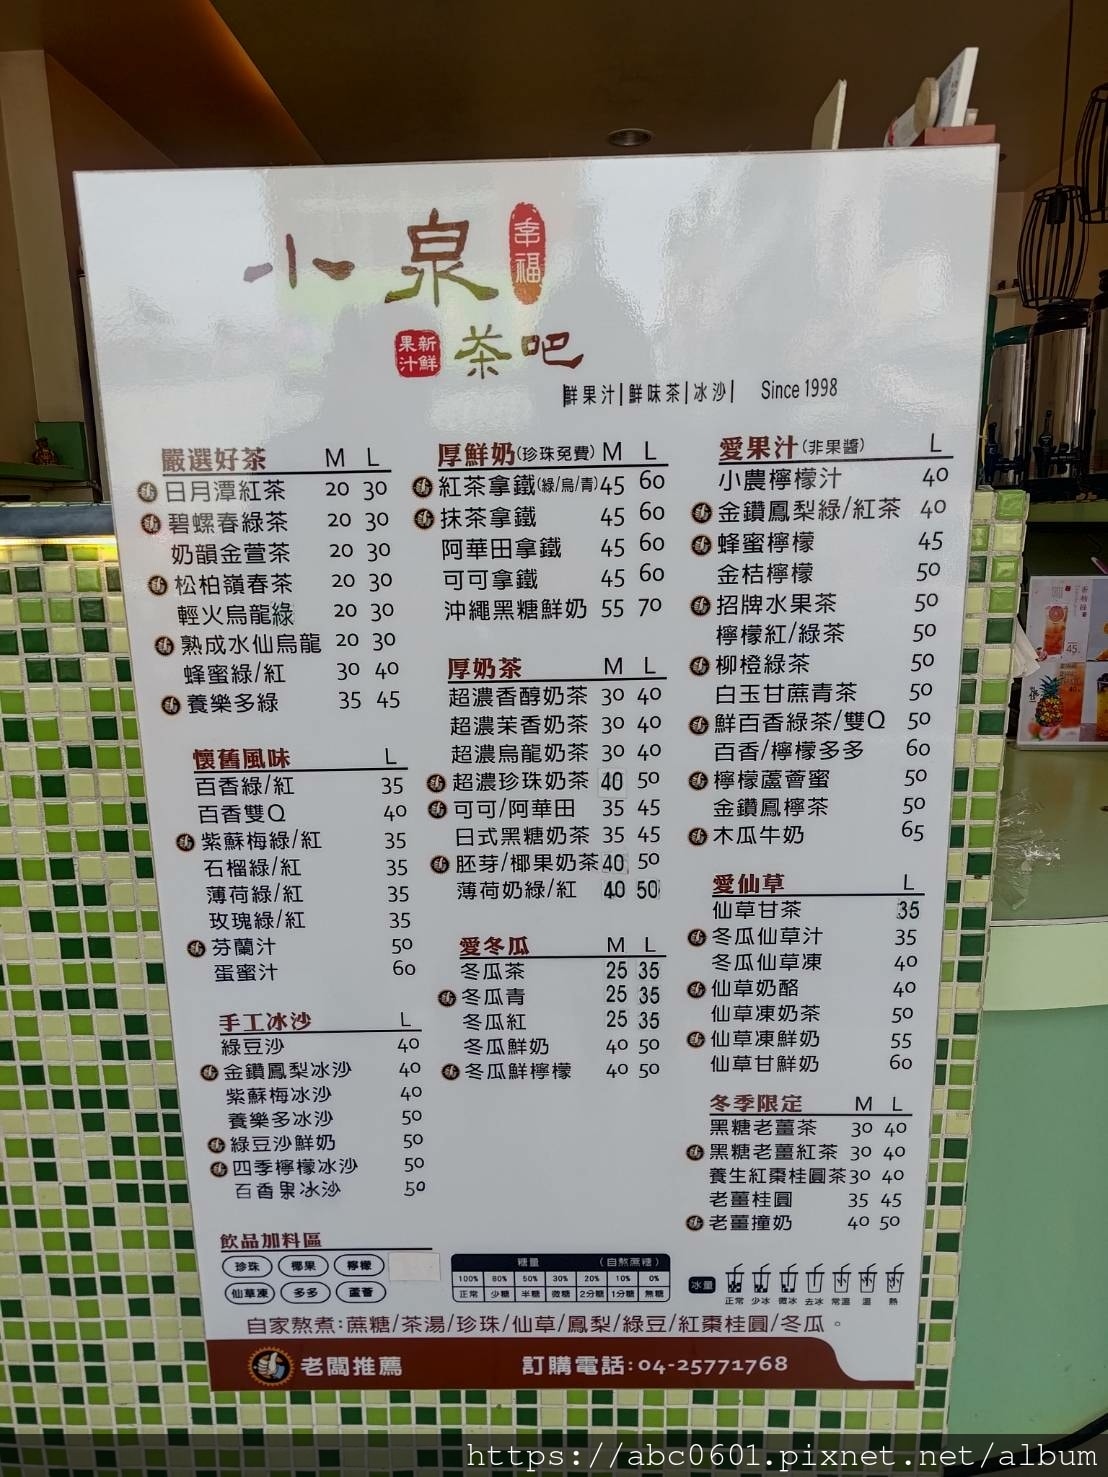 小泉 幸福
新鮮果汁 茶吧
鮮果汁|鮮味茶|冰沙| Since 1998
嚴選好茶 M L
日月潭紅茶 20 30
碧螺春綠茶 20 30
奶韻金萱茶 20 30
松柏嶺春茶 20 30
輕火烏龍綠 20 30
熟成水仙烏龍 20 30
蜂蜜綠/紅 30 40
養樂多綠 35 45
懷舊風味 L
百香綠/紅 35
百香雙Q 40
紫蘇梅綠/紅 35
石榴綠/紅 35
薄荷綠/紅 35
玫瑰綠/紅 35
芬蘭汁 50
蛋蜜汁 60
手工冰沙 L
綠豆沙 40
金鑽鳳梨冰沙 40
紫蘇梅冰沙 40
養樂多冰沙 50
綠豆沙鮮奶 50
四季檸檬冰沙 50
百香果冰沙 50
厚鮮奶(珍珠免費) M L
紅茶拿鐵(綠/烏/青) 45 60
抹茶拿鐵 45 60
阿華田拿鐵 45 60
可可拿鐵 45 60
沖繩黑糖鮮奶 55 70
厚奶茶 M L
超濃香醇奶茶 30 40
超濃茉香奶茶 30 40
超濃烏龍奶茶 30 40
超濃珍珠奶茶 40 50
可可/阿華田 35 45
日式黑糖奶茶 35 45
胚芽/椰果奶茶 40 50
薄荷奶綠/紅 40 50
愛冬瓜 M L
冬瓜茶 25 35
冬瓜青 25 35
冬瓜紅 25 35
冬瓜鮮奶 40 50
冬瓜鮮檸檬 40 50
愛果汁(非果醬) L
小農檸檬汁 40
金鑽鳳梨綠/紅茶 40
蜂蜜檸檬 45
金桔檸檬 50
招牌水果茶 50
檸檬紅/綠茶 50
柳橙綠茶 50
白玉甘蔗青茶 50
鮮百香綠茶/雙Q 50
百香/檸檬多多 60
檸檬蘆薈蜜 50
金鑽鳳檸茶 50
木瓜牛奶 65
愛仙草 L
仙草甘茶 35
冬瓜仙草汁 35
冬瓜仙草凍 40
仙草奶酪 40
仙草凍奶茶 50
仙草凍鮮奶 55
仙草甘鮮奶 60
冬季限定 M L
黑糖老薑茶 30 40
黑糖老薑紅茶 30 40
養生紅棗桂圓茶 30 40
老薑桂圓 35 45
老薑撞奶 40 50
飲品加料區
珍珠 椰果 檸檬
仙草凍 多多 蘆薈
糖量 (自熬蔗糖)
100% 80% 50% 30% 20% 10% 0%
正常 少糖 半糖 微糖 2分糖 1分糖 無糖
冰量 正常 少冰 微冰 去冰 常溫 溫 熱
自家熬煮:蔗糖/茶湯/珍珠/仙草/鳳梨/綠豆/紅棗桂圓/冬瓜。
老闆推薦 訂購電話:04-25771768
https://abc0601.pixnet.net/album